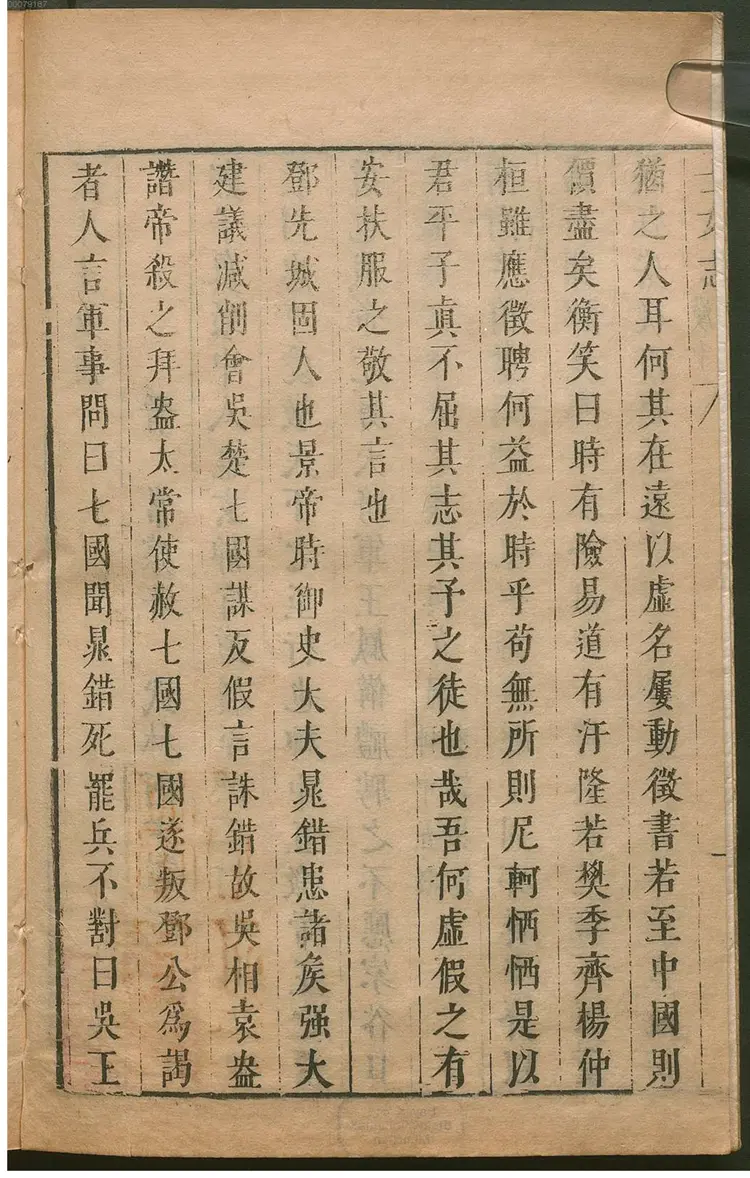 00079187
士女志
猶之人耳何其在遠以虛名屢動徵書若至中國則
價盡矣衡笑曰時有險易道有汙隆若樊季齊楊仲
桓雖應徵聘何益於時乎苟無所則尼軻恓恓是以
君平子真不屈其志其予之徒也哉吾何虛假之有
安扶服之敬其言也
鄧先城固人也景帝時御史大夫晁錯患諸矦强大
建議減削會吳楚七國謀反假言誅錯故吳相袁盎
譖帝殺之拜盎太常使赦七國七國遂叛鄧公為謁
者人言軍事問曰七國聞晁錯死罷兵不對曰吳王